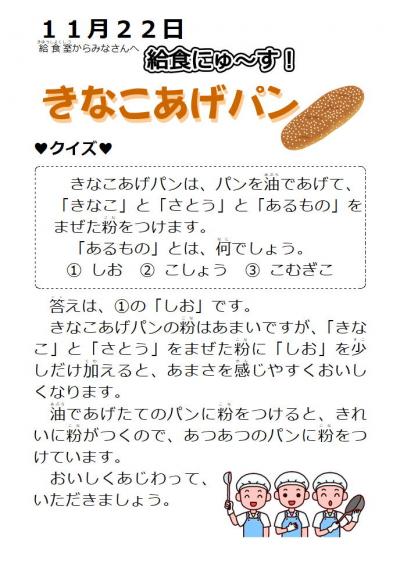 １１月２２日
給食室からみなさんへ
給食にゅ～す！
きなこあげパン
♥クイズ♥
きなこあげパンは、パンを油であげて、
「きなこ」と「さとう」と「あるもの」を
まぜた粉をつけます。
「あるもの」とは、何でしょう。
① しお　② こしょう　③ こむぎこ
答えは、①の「しお」です。
きなこあげパンの粉はあまいですが、「きな
こ」と「さとう」をまぜた粉に「しお」を少
しだけ加えると、あまさを感じやすくおいし
くなります。
油であげたてのパンに粉をつけると、きれ
いに粉がつくので、あつあつのパンに粉をつ
けています。
おいしくあじわって、
いただきましょう。